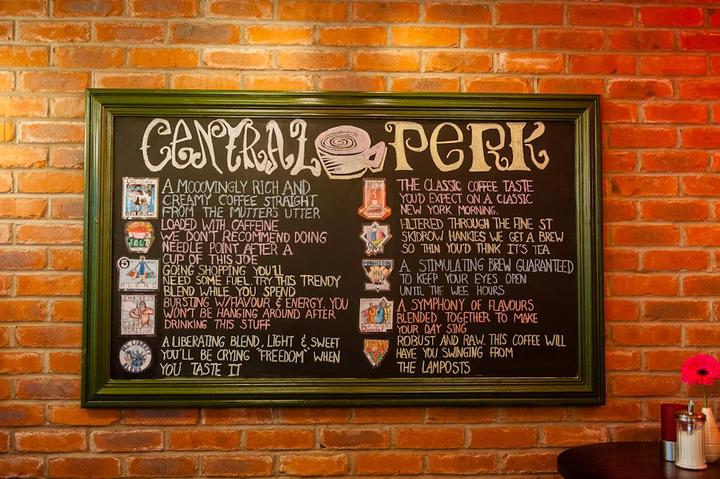 CENTRAL PERK
A MOOOVINGLY RICH AND
CREAMY COFFEE STRAIGHT
FROM THE MUTTERS UTTER
LOADED WITH CAFFEINE
WE DON'T RECOMMEND DOING
NEEDLE POINT AFTER A
CUP OF THIS JOE
GOING SHOPPING YOU'LL
NEED SOME FUEL. TRY THIS TRENDY
BLEND WHILE YOU SPEND
BURSTING W/FLAVOUR & ENERGY. YOU
WON'T BE HANGING AROUND AFTER
DRINKING THIS STUFF
A LIBERATING BLEND, LIGHT & SWEET
YOU'LL BE CRYING "FREEDOM" WHEN
YOU TASTE IT
THE CLASSIC COFFEE TASTE
YOU'D EXPECT ON A CLASSIC
NEW YORK MORNING.
FILTERED THROUGH THE FINE ST
SKIDROW HANKIES WE GET A BREW
SO THIN YOU'D THINK IT'S TEA.
A STIMULATING BREW GUARANTEED
TO KEEP YOUR EYES OPEN
UNTIL THE WEE HOURS.
A SYMPHONY OF FLAVOURS
BLENDED TOGETHER TO MAKE
YOUR DAY SING
ROBUST AND RAW. THIS COFFEE WILL
HAVE YOU SWINGING FROM
THE LAMPOSTS